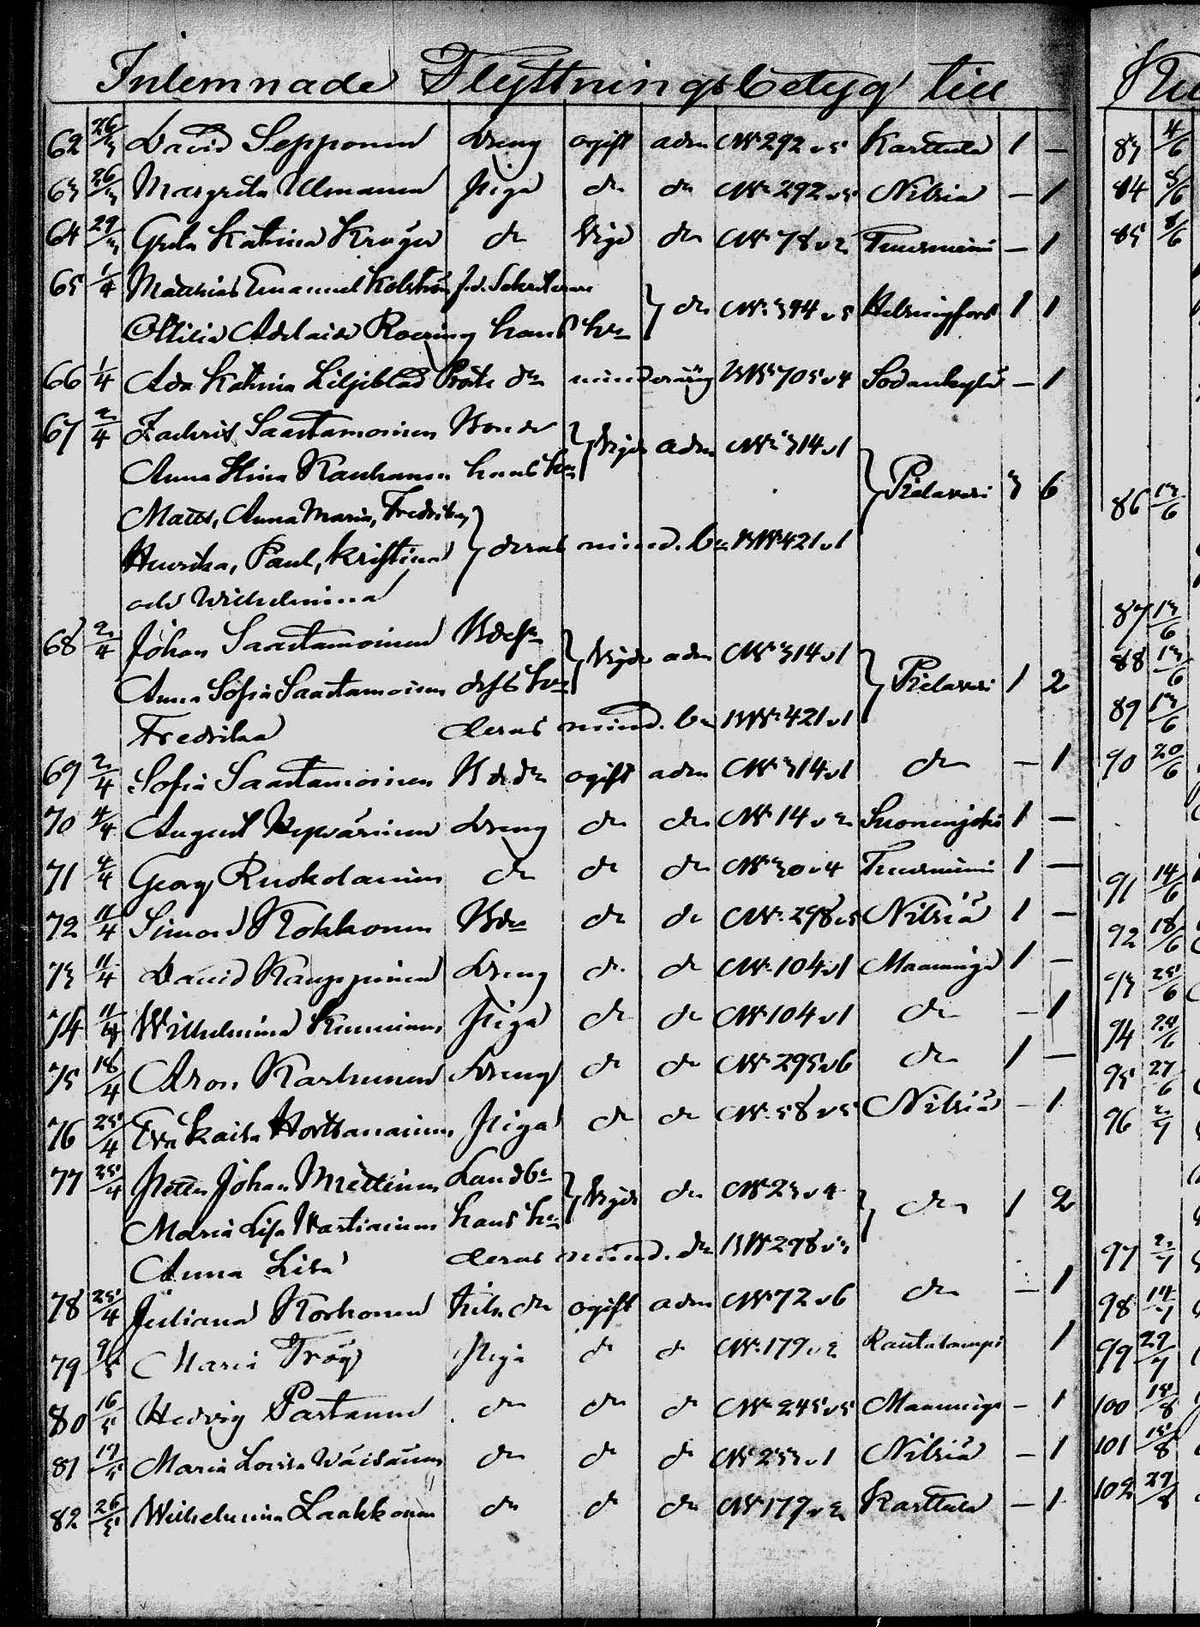 Inlemnade Flyttningsbetyg till
62 26/3 David Sepponen dreng ogift adm N: 292 v 5 Karttula 1 —
63 26/3 Margreta Ullmanen Piga do do N: 292 v 5 Nilsiä — 1
64 29/3 Greta Katrina Kröger do do N: 78 v 2 Tuusniemi — 1
65 1/4 Matthias Emanuel
Ottilia Adelaide hans hu do N: 394 v 5 Helsingfors 1 1
66 1/4 Ada Katrina Liljeblad minderårig 705 v 4 Sodankylä — 1
67 2/4 Zachris Saastamoinen Bonde adm N: 314 v 1
Anna Stina Kauhanen hans hu
Matts, Anna Maria, Fredrika, Pielavesi 3 6
Henrika, Paul, Kristina deras mind. b: 421 v 1
och Wilhelmina
68 2/4 Johan Saastamoinen adm N: 314 v 1
Anna Sofia Saastamoinen dess hu Pielavesi 1 2
Fredrika deras mind. b: 421 v 1
69 2/4 Sofia Saastamoinen ogift adm N: 314 v 1 do — 1
70 4/4 August dreng do do N: 14 v 2 Suonenjoki 1 —
71 4/4 Georg Ruskolainen do do do N: 30 v 4 Tuusniemi 1 —
72 11/4 Simon Kokkonen do do N: 298 v 5 Nilsiä 1 —
73 11/4 David Kauppinen dreng do do N: 104 v 1 Maaninga 1 —
74 11/4 Wilhelmina Piga do do N: 104 v 1 do — 1
75 18/4 Aron Karhunen dreng do do N: 295 v 6 do 1 —
76 25/4 Eva Kaisa Piga do do N: 58 v 5 Nilsiä — 1
77 25/4 Petter Johan Miettinen Landb: do N: 23 v 4
Maria Lisa Wartiainen hans hu do 1 2
Anna Lisa deras mind. do 298 v
78 25/4 Juliana Korhonen ogift adm N: 72 v 6 do — 1
79 9/5 Maria Tröij Piga do do N: 179 v 2 Rautalampi 1
80 16/5 Hedvig Partanen do do do N: 245 v 5 Maaninga — 1
81 19/5 Maria Lovisa Wäisänen do do do N: 233 v 1 Nilsiä — 1
82 26/5 Wilhelmina Laakkonen do do do N: 179 v 2 Karttula — 1
83 4/6
84 8/6
85 8/6
86 13/6
87 13/6
88 13/6
89 13/6
90 20/6
91 14/6
92 18/6
93 25/6
94
95 27/6
96 2/7
97 2/7
98 14/7
99 27/7
100 15/8
101 15/8
102 27/8